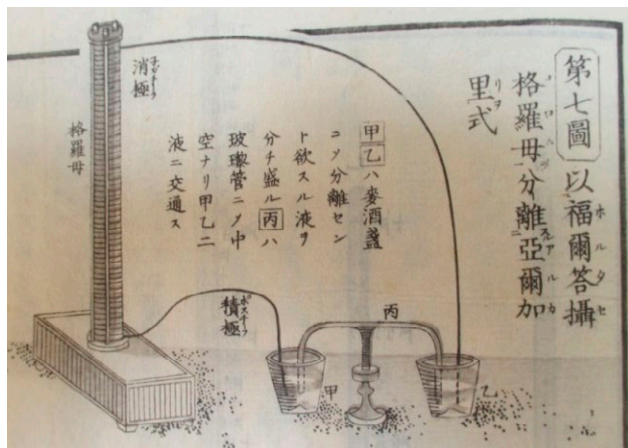 第七圖 以福爾答攝
格羅母分離亞爾加
里式
甲乙ハ麥酒盞
ニ𬼀分離セン
ト欲スル液ヲ
分チ盛ル丙ハ
玻瓈管ニ𬼀中
空ナリ甲乙二
液ニ交通ス
消極
格羅母
積極
ポスチーフ
丙
甲
乙